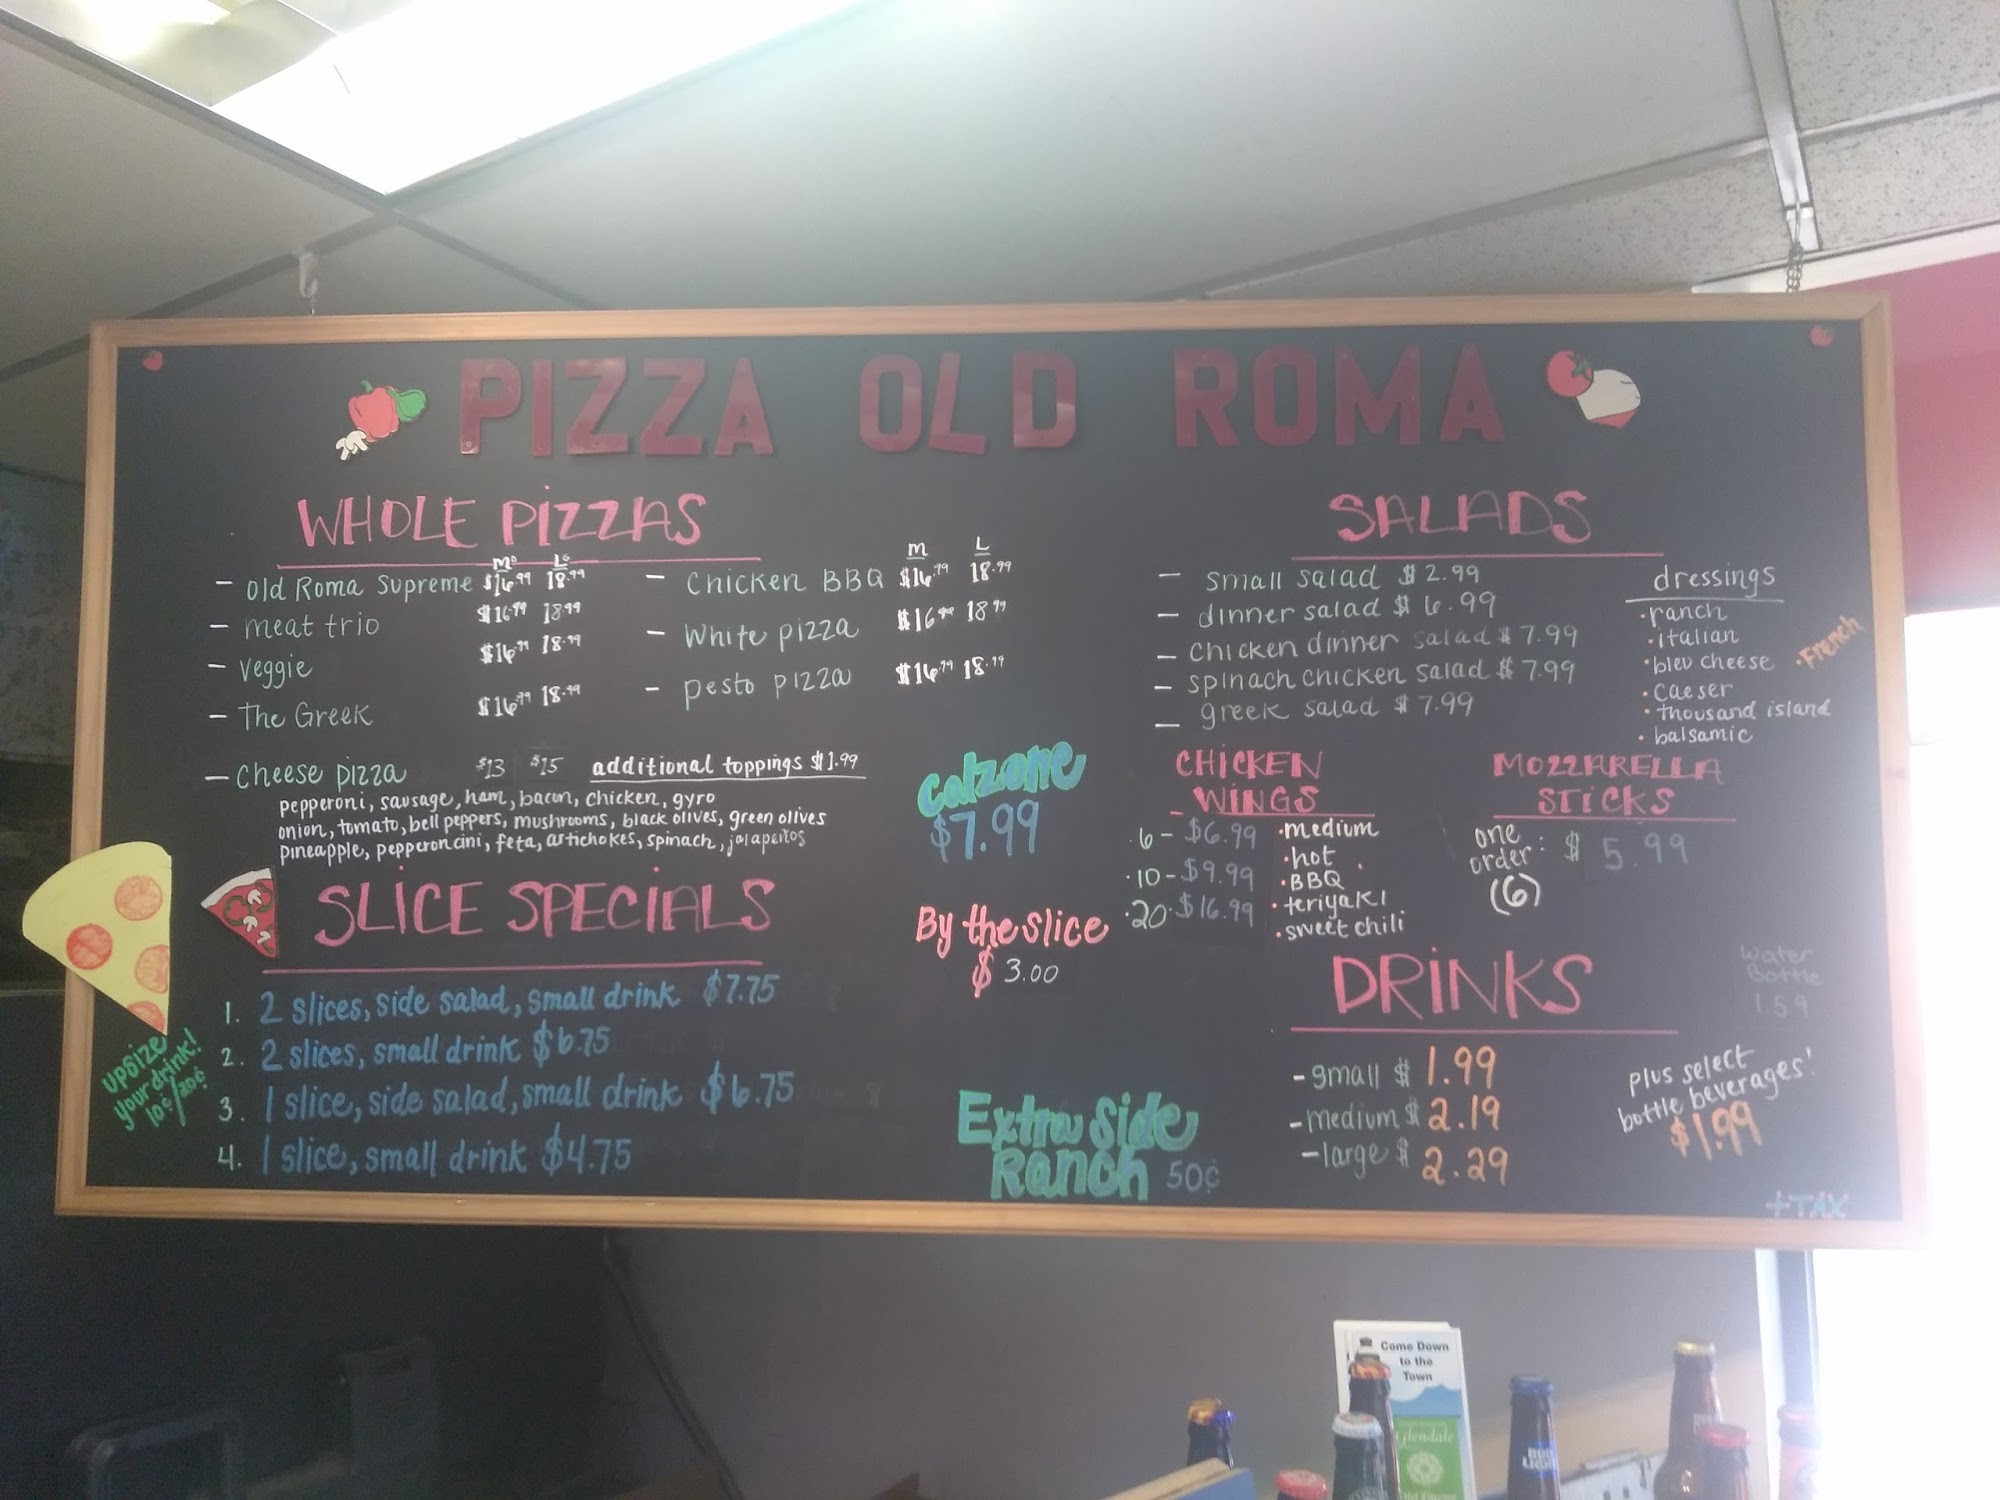 PIZZA OLD ROMA
WHOLE PIZZAS
M L
- Old Roma Supreme $16.99 18.99
- meat trio $16.99 18.99
- veggie $16.99 18.99
- The Greek $16.99 18.99
M L
- Chicken BBQ $16.99 18.99
- White pizza $16.99 18.99
- pesto pizza $16.99 18.99
- Cheese pizza $13 $15 additional toppings $1.99
pepperoni, sausage, ham, bacon, chicken, gyro
onion, tomato, bell peppers, mushrooms, black olives, green olives
pineapple, pepperoncini, feta, artichokes, spinach, jalapeños
SLICE SPECIALS
1. 2 slices, side salad, small drink $7.75
2. 2 slices, small drink $6.75
3. 1 slice, side salad, small drink $6.75
4. 1 slice, small drink $4.75
upsize
your drink!
10¢/20¢
Calzone
$7.99
By the slice
$ 3.00
Extra Side
Ranch 50¢
SALADS
- small salad $ 2.99
- dinner salad $ 6.99
- chicken dinner salad $ 7.99
- spinach chicken salad $ 7.99
- greek salad $ 7.99
dressings
• ranch
• italian
• bleu cheese
• caeser
• thousand island
• balsamic
• French
CHICKEN
WINGS
• 6 - $6.99
• 10 - $9.99
• 20 • $16.99
• medium
• hot
• BBQ
• teriyaki
• sweet chili
MOZZARELLA
STICKS
one
order: $ 5.99
(6)
DRINKS
- small $ 1.99
- medium $ 2.19
- large $ 2.29
Water
Bottle
1.59
plus select
bottle beverages!
$1.99
+TAX
Come Down
to the
Town
Glendale
BUD
LIGHT